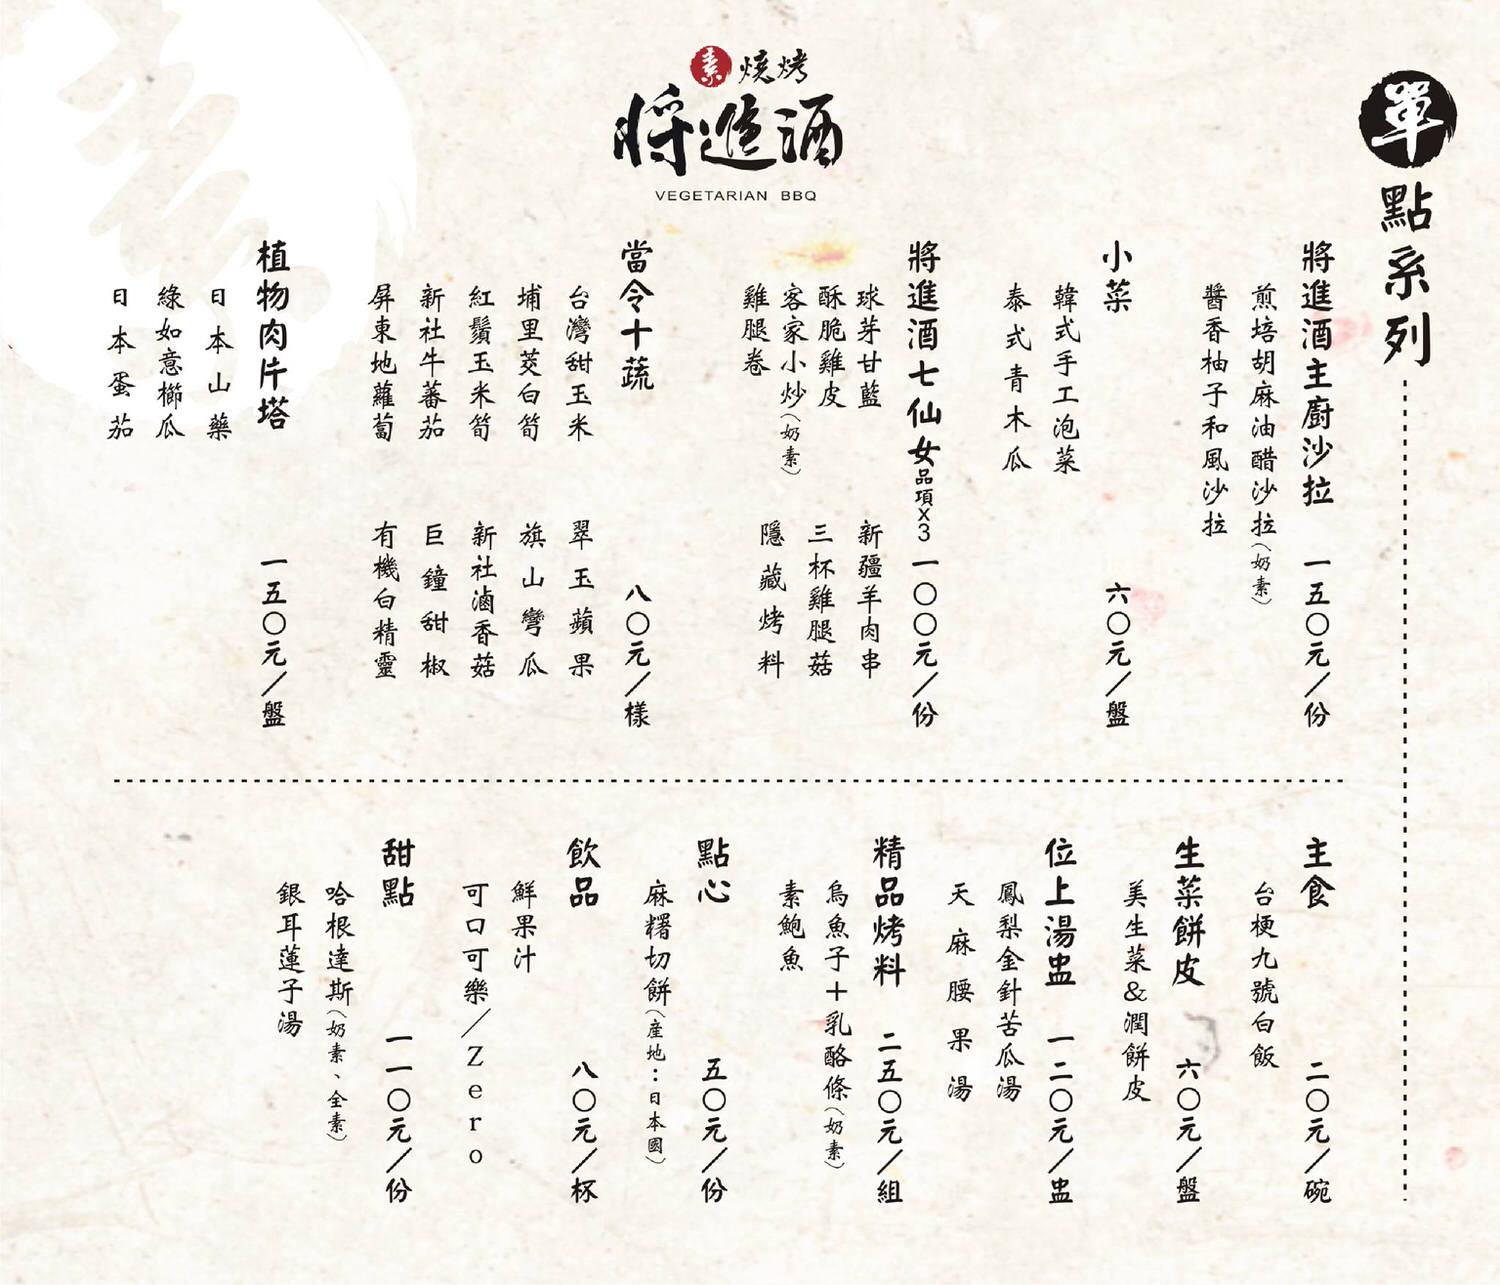 單點系列
素 燒烤
將進酒
VEGETARIAN BBQ
將進酒主廚沙拉 一五〇元/份
煎培胡麻油醋沙拉(奶素)
醬香柚子和風沙拉
小菜 六〇元/盤
韓式手工泡菜
泰式青木瓜
將進酒七仙女品項x3 一〇〇元/份
球芽甘藍
酥脆雞皮
客家小炒(奶素)
雞腿卷
新疆羊肉串
三杯雞腿菇
隱藏烤料
當令十蔬 八〇元/樣
台灣甜玉米
埔里茭白筍
紅鬚玉米筍
新社牛蕃茄
屏東地蘿蔔
翠玉蘋果
旗山彎瓜
新社滷香菇
巨鐘甜椒
有機白精靈
植物肉片塔 一五〇元/盤
日本山藥
綠如意櫛瓜
日本蛋茄
主食 二〇元/碗
台梗九號白飯
生菜餅皮 六〇元/盤
美生菜&潤餅皮
位上湯盅 一二〇元/盅
鳳梨金針苦瓜湯
天麻腰果湯
精品烤料 二五〇元/組
烏魚子+乳酪條(奶素)
素鮑魚
點心 五〇元/份
麻糬切餅(産地:日本國)
飲品 八〇元/杯
鮮果汁
可口可樂/Zero
甜點 一一〇元/份
哈根達斯(奶素、全素)
銀耳蓮子湯
素